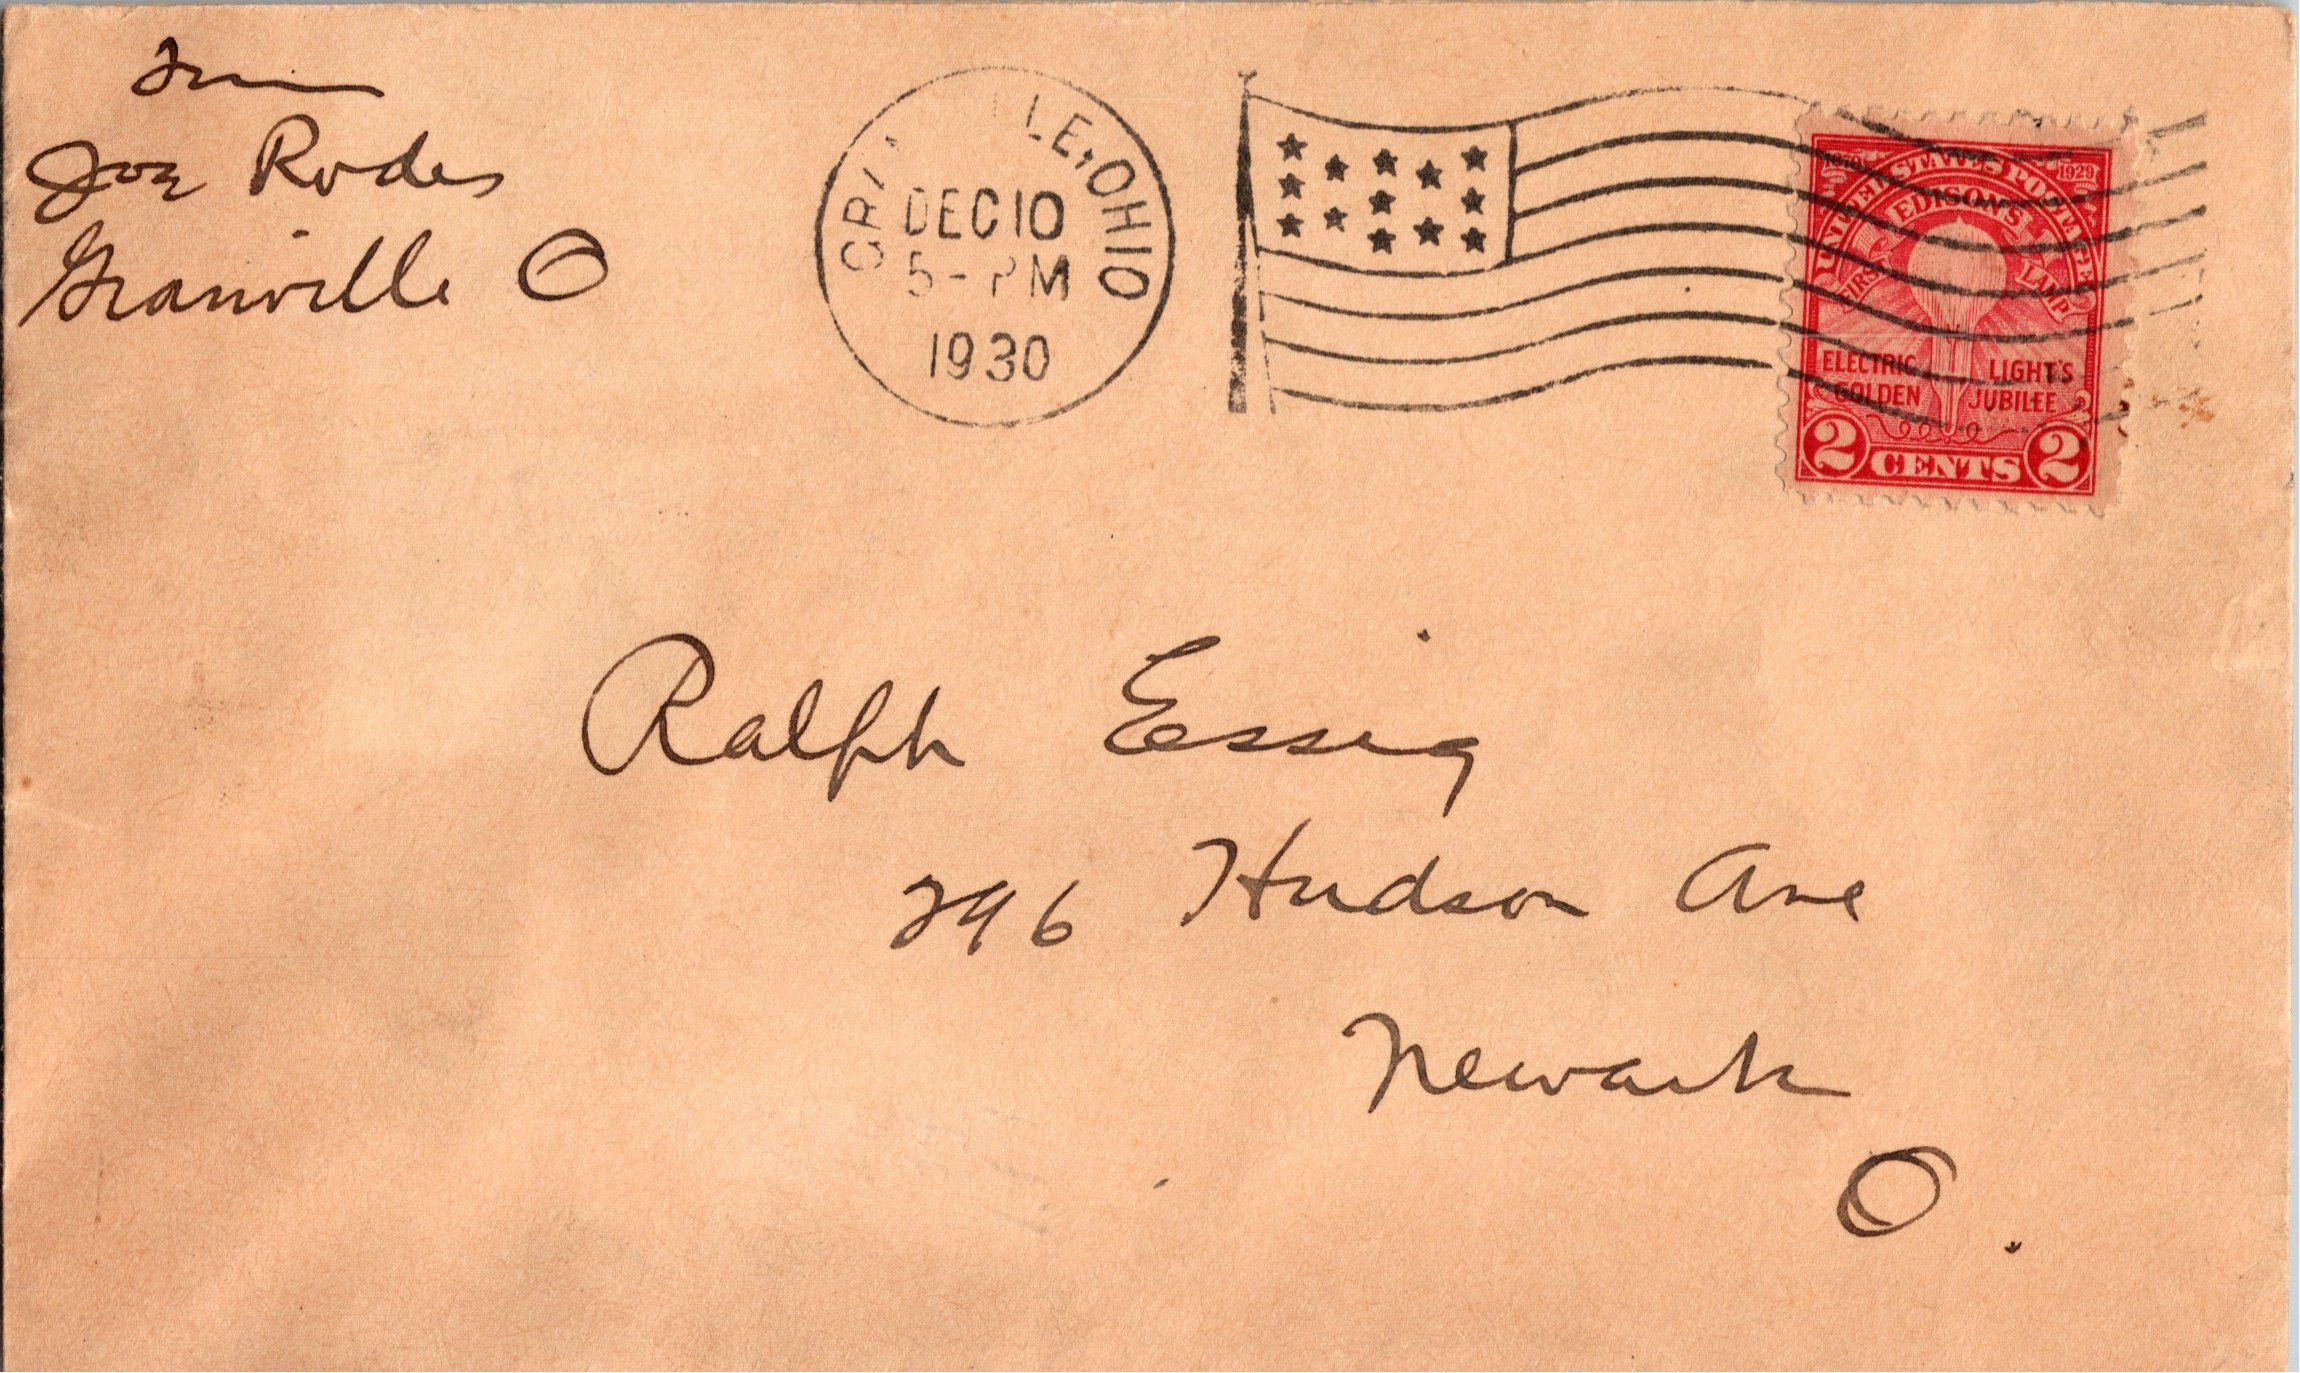 Joe Rodes
Granville O
LE, OHIO
DEC 10
5 - PM
1930
1879 1929
UNITED STATES POSTAGE
EDISON'S
FIRST LAMP
ELECTRIC LIGHT'S
GOLDEN JUBILEE
2 CENTS 2
Ralph Essig
296 Hudson Ave
Newark
O.